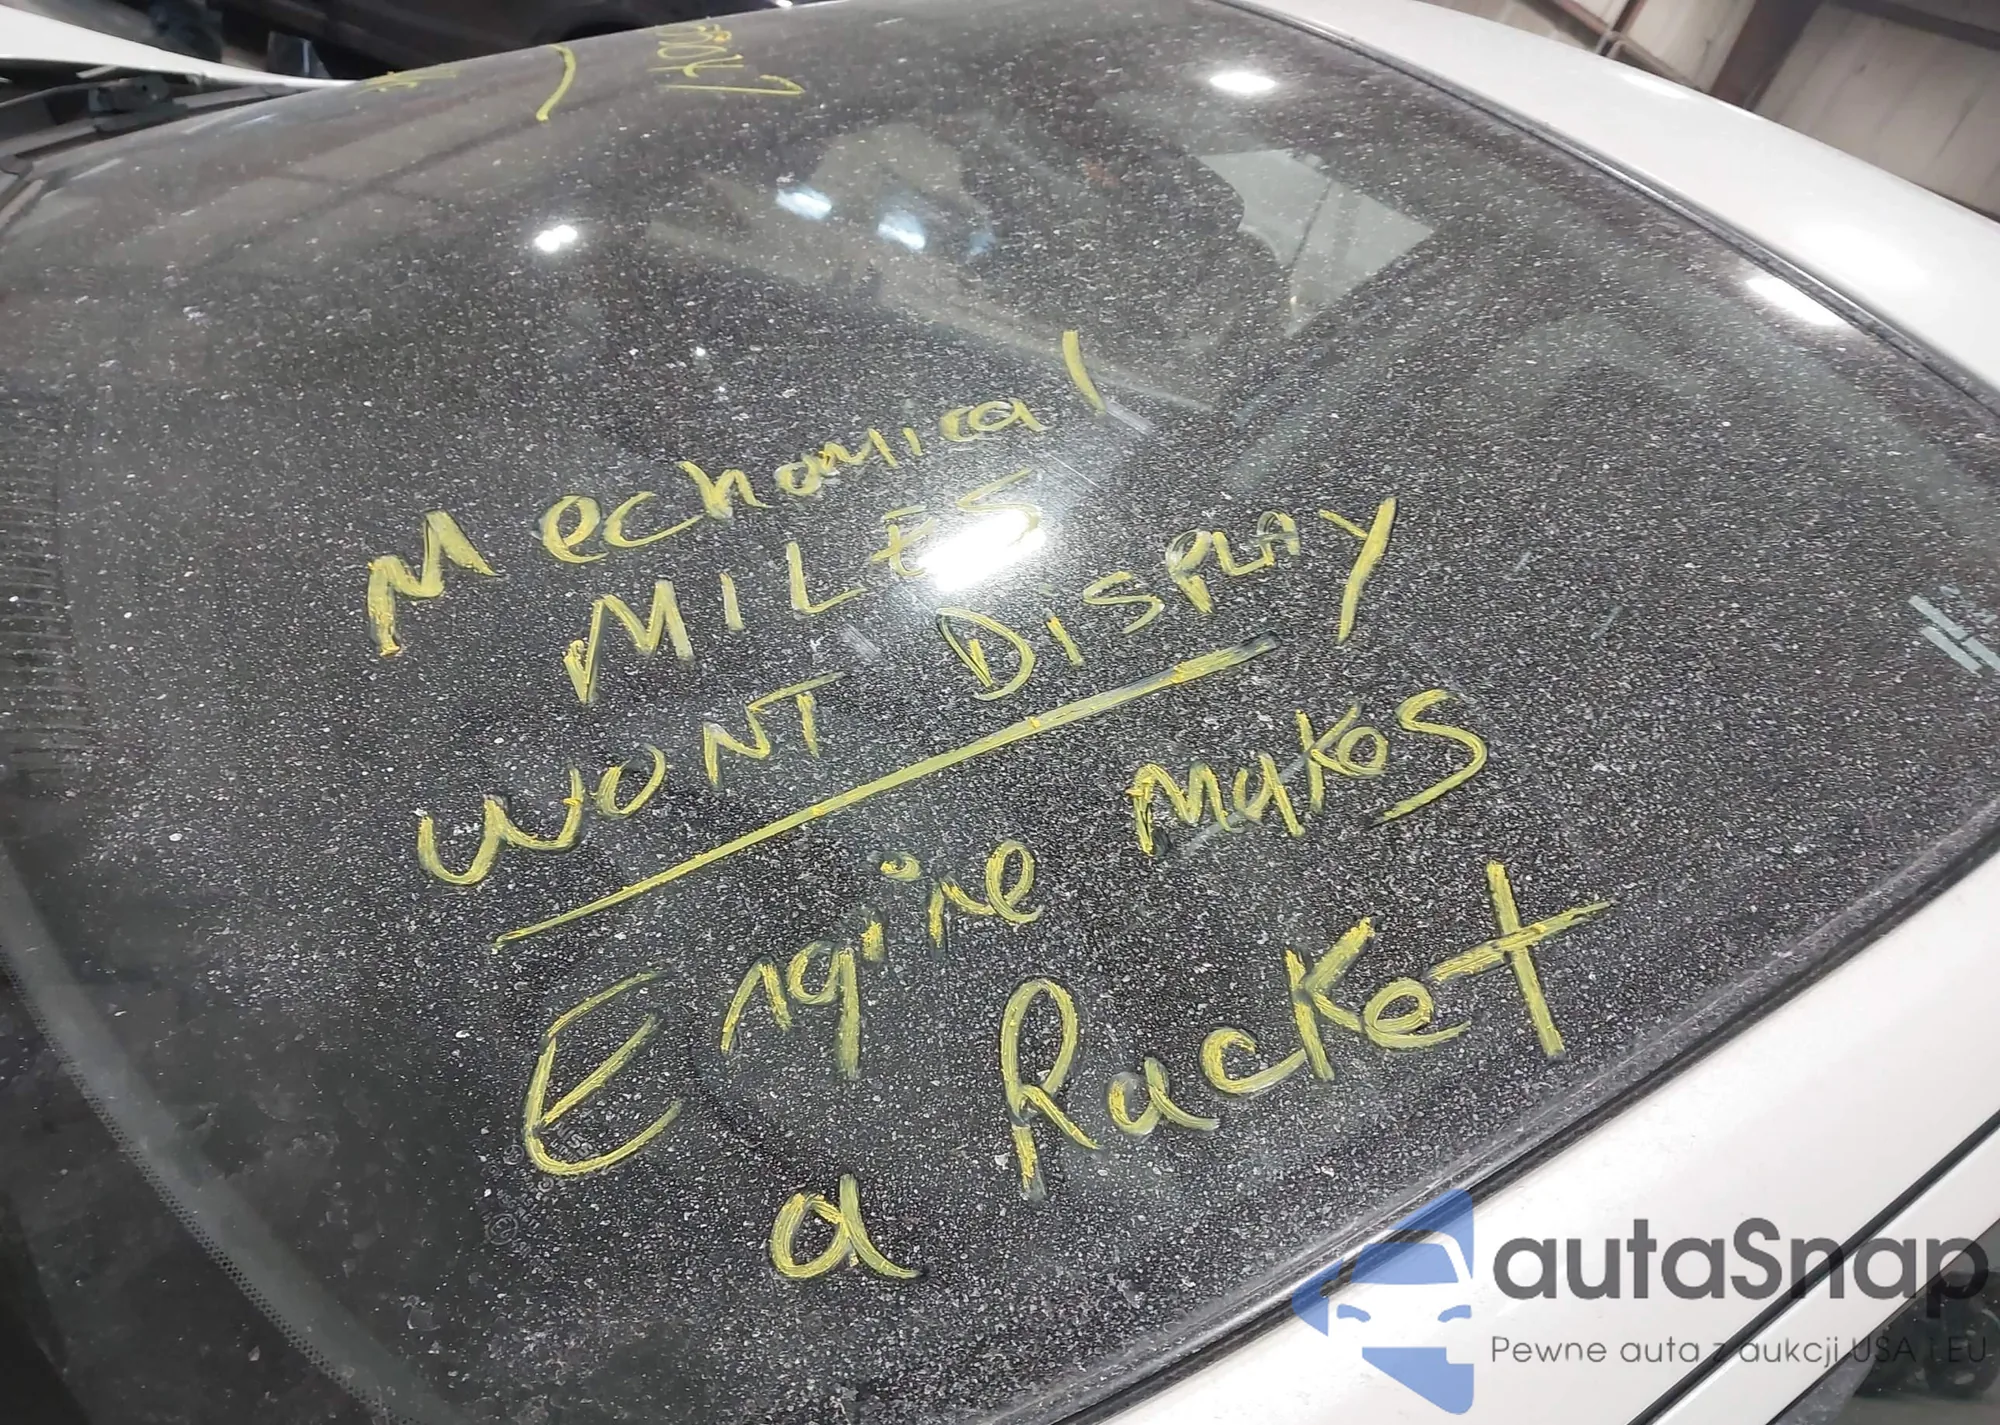 Mechanical
MILES
WONT DiSPLAY
Engine makes
a Racket
autaSnap
Pewne auta z aukcji USA i EU